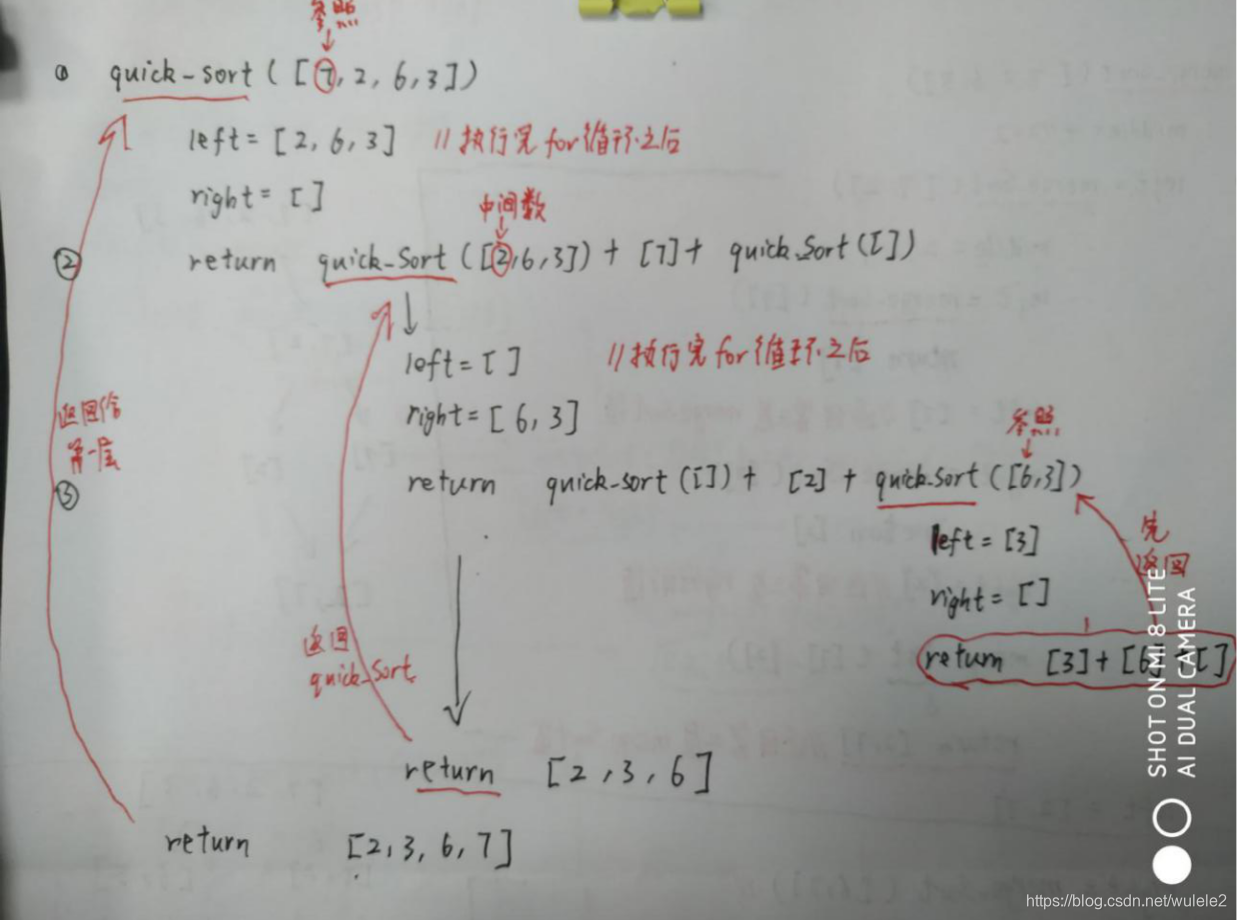 参照
① quick-sort ( [ 7, 2, 6, 3 ] )
left = [ 2, 6, 3 ] // 执行完 for 循环之后
right = [ ]
中间数
② return quick-Sort ( [2,6,3] ) + [7] + quick-Sort ( [ ] )
left = [ ] // 执行完 for 循环之后
right = [ 6, 3 ]
参照
返回给
第一层
③ return quick-sort ( [ ] ) + [2] + quick-Sort ( [6,3] )
left = [3]
先
返回
right = [ ]
返回
quick-Sort
return [3] + [6] + [ ]
return [ 2 , 3 , 6 ]
return [ 2, 3, 6, 7 ]
SHOT ON MI 8 LITE
AI DUAL CAMERA
https://blog.csdn.net/wulele2